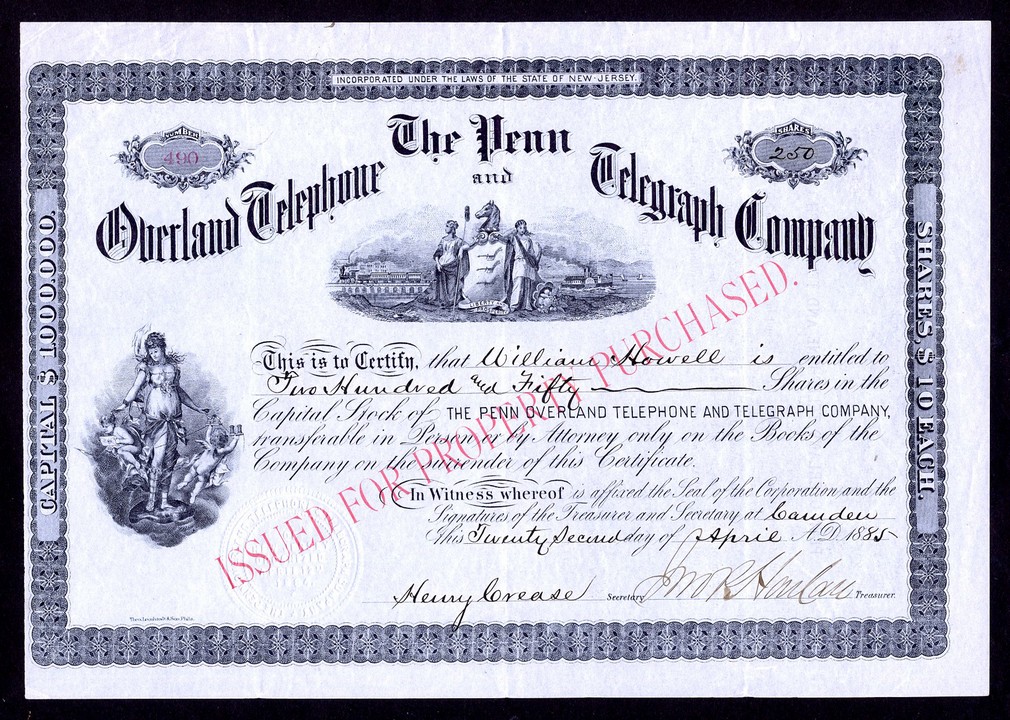 INCORPORATED UNDER THE LAWS OF THE STATE OF NEW-JERSEY.
NUMBER
490
SHARES
250
The Penn
Overland Telephone and Telegraph Company
CAPITAL $ 1,000,000.
SHARES, $ 10 EACH.
LIBERTY
This is to Certify, that William Howell is entitled to
Two Hundred and Fifty Shares in the
Capital Stock of THE PENN OVERLAND TELEPHONE AND TELEGRAPH COMPANY,
transferable in Person or by Attorney only on the Books of the
Company on the surrender of this Certificate.
ISSUED FOR PROPERTY PURCHASED.
In Witness whereof is affixed the Seal of the Corporation and the
Signatures of the Treasurer and Secretary at Camden
this Twenty Second day of April A.D. 1885
Henry Crease Secretary Jno R Harlan Treasurer.